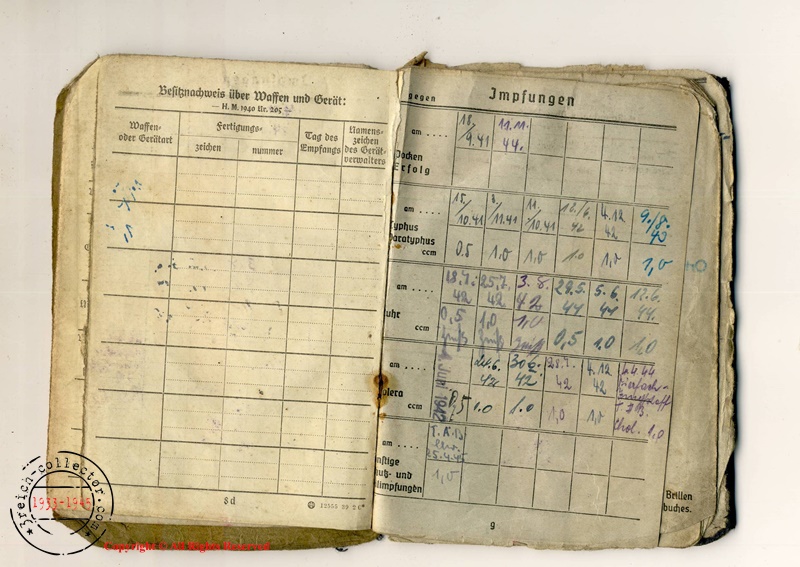 Besitznachweis über Waffen und Gerät:
— H. M. 1940 Nr. 205
Waffen-
oder Gerätart
Fertigungs-
zeichen
nummer
Tag des
Empfangs
Namens-
zeichen
des Gerät-
verwalters
8d
gegen
Impfungen
am . . . .
18.
/9.41
11.11.
44.
Pocken
Erfolg
am . . . .
15.
/10.41
/11.41
11.
/10.41
4.12
42
9./8.
42
Typhus
Paratyphus
ccm
0.5
1,0
1,0
1.0
1,0
1,0
am . . . .
18.7.
42
25.7.
42
3.8.
42
29.5.
44
5.6.
44
12.6.
44.
Ruhr
ccm
0,5
1,0
1,0
0,5
1.0
1,0
am . . . .
4. Juni 1942
24.6.
42
30.6.
42
42
4.12
42
Cholera
ccm
0,5
1.0
1.0
1,0
1,0
Chol. 1,0
am . . . .
T.A.B.
25.4.45
Sonstige
Schutz- und
Heilimpfungen
1,0
9
Brillen
buches.
3reich-collector.com
1933-1945
Copyright © All Rights Reserved